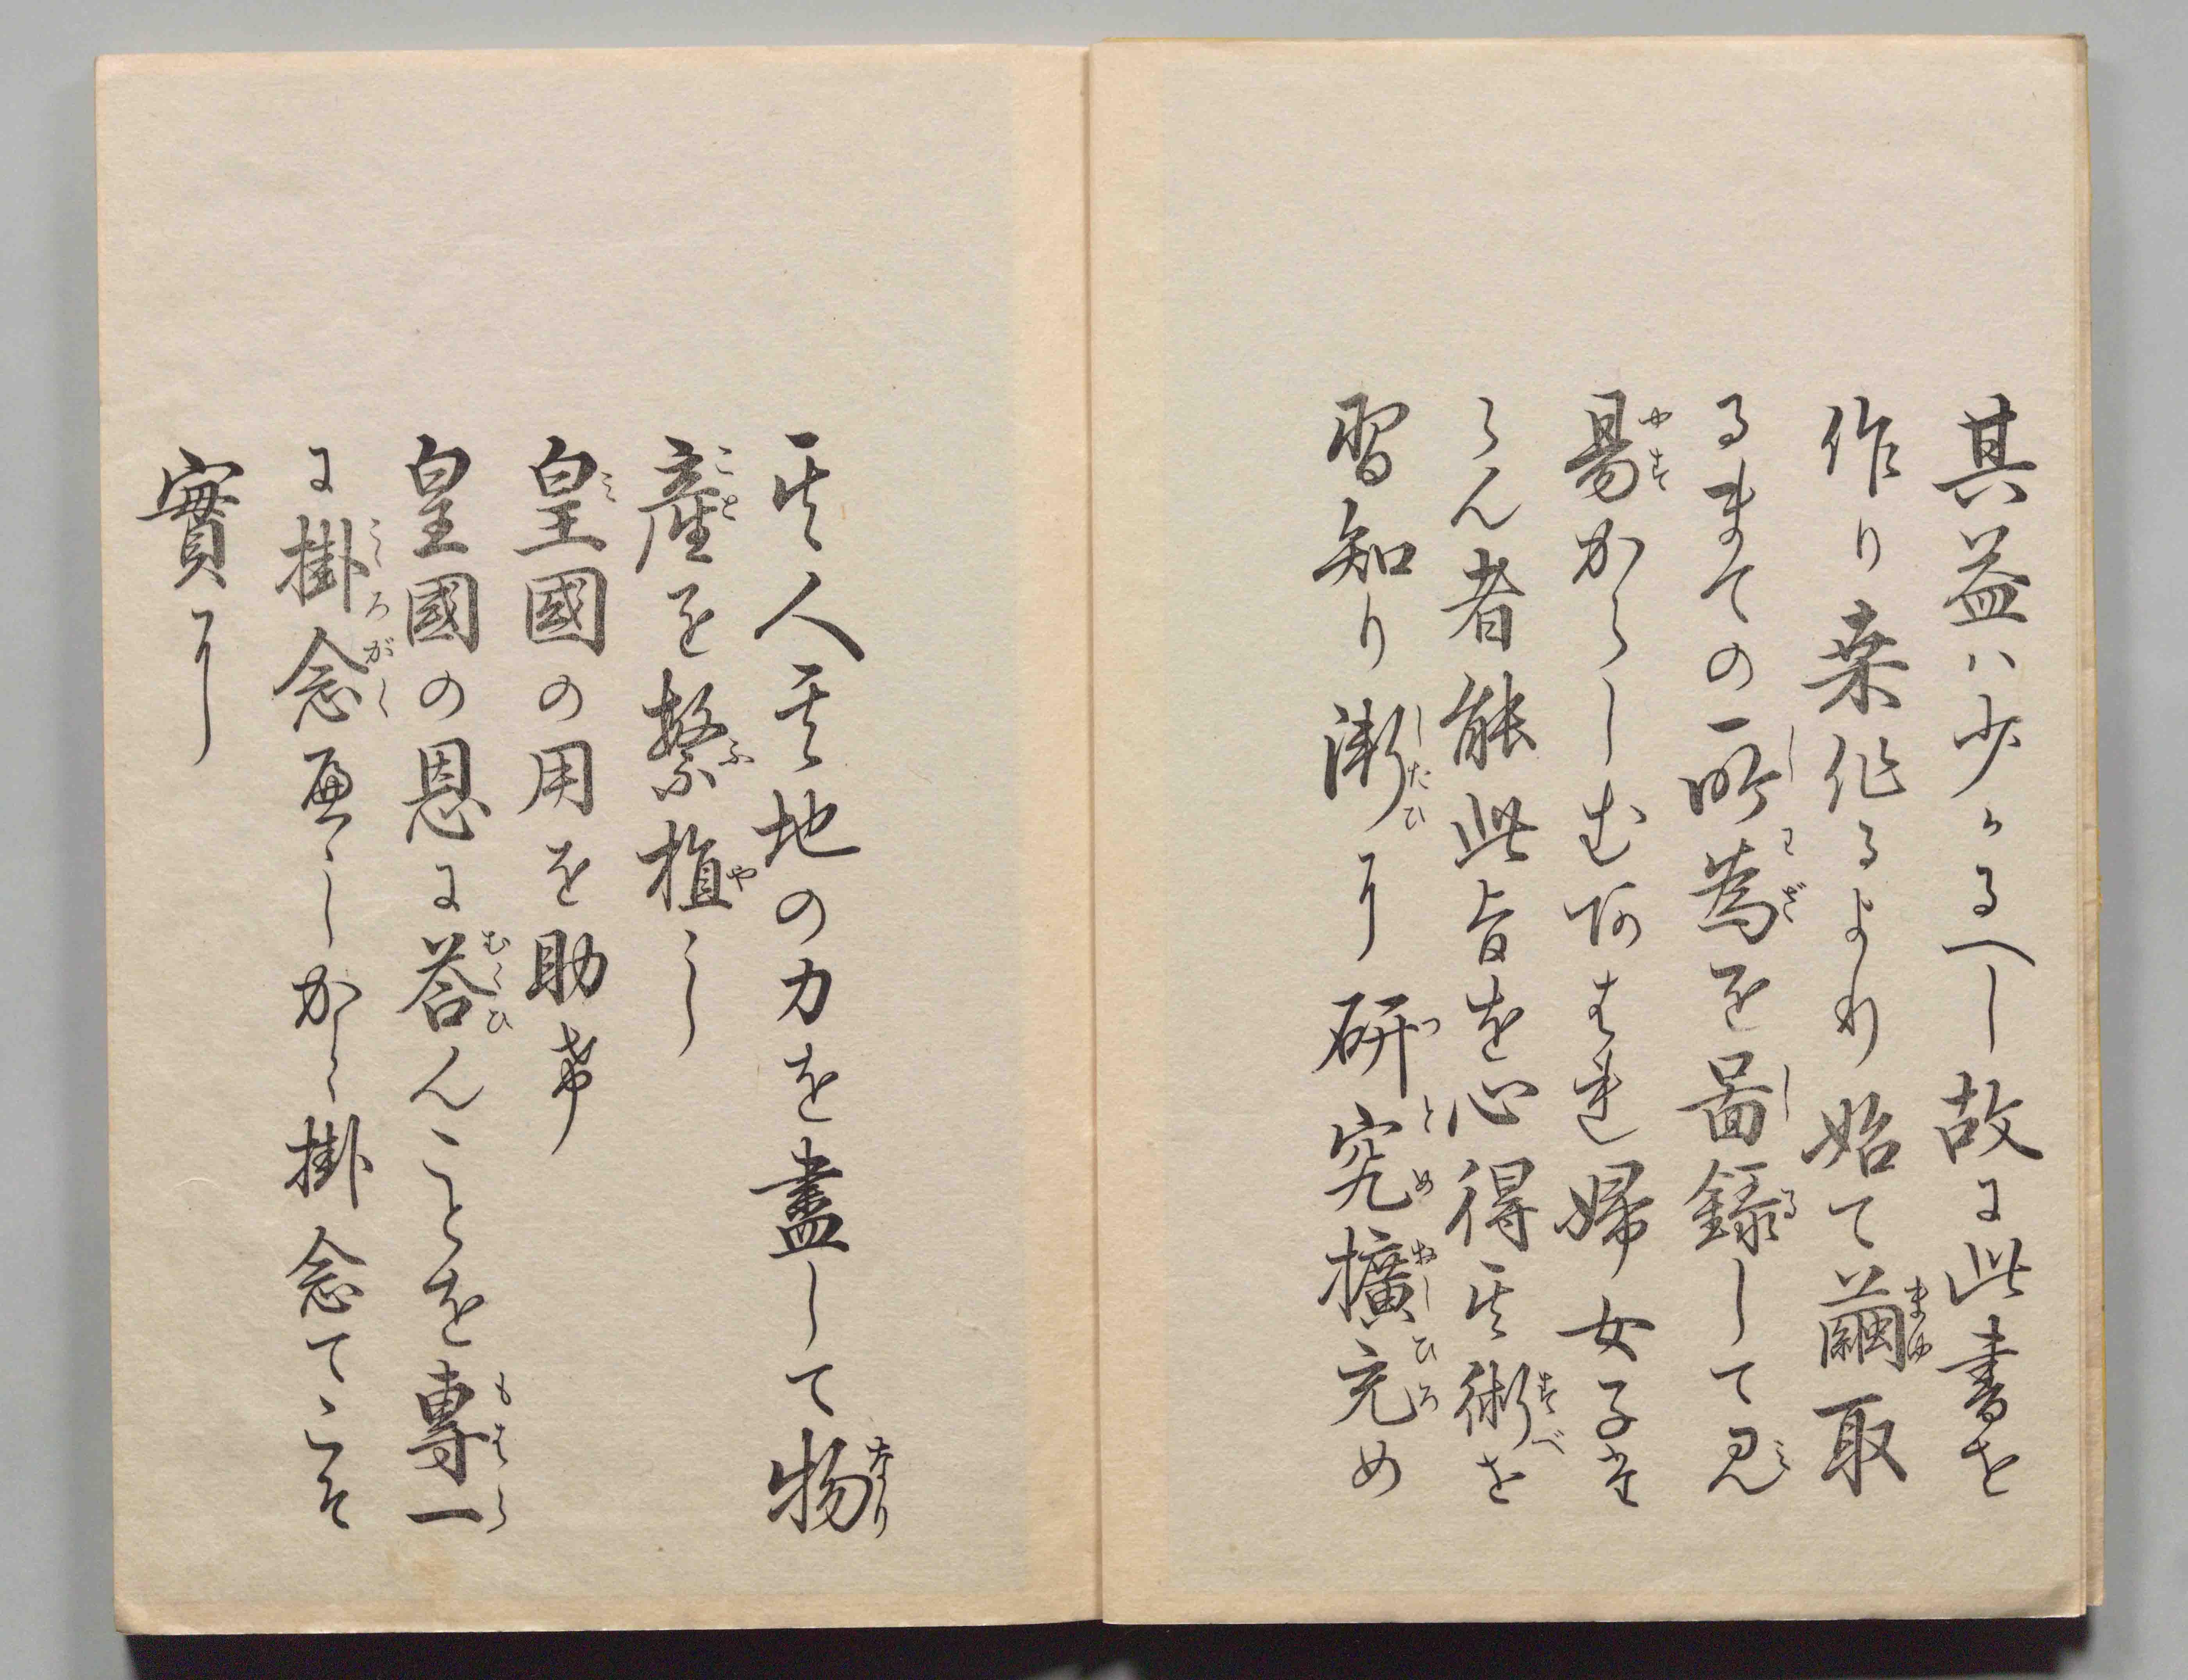 其益ハ少かるへし故に此書を
作り桑作るより始て繭取
るまての所為を図録して見
易からしむ阿はれ婦女子た
らん者能此旨を心得其術を
習知り漸に研究擴充め
其人其地の力を盡して物
産を繁殖し
皇國の用を助希
皇國の恩に答んことを専一
に掛念へし かく掛念てこそ
實に